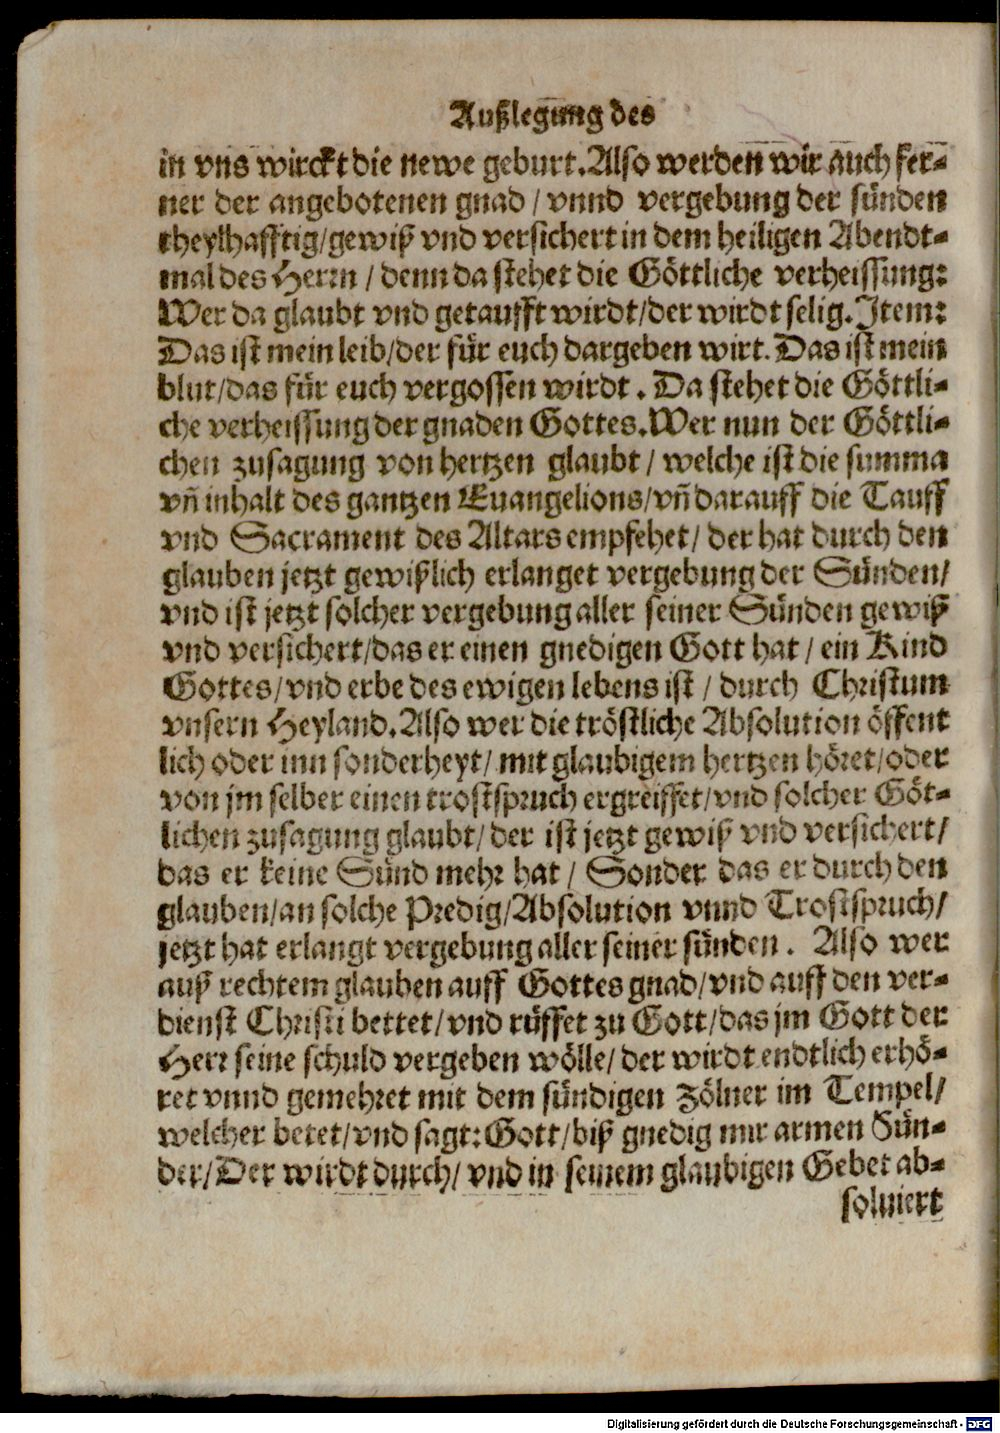 Außlegung des
in vns wirckt die newe geburt. Also werden wir auch fer-
ner der angebotenen gnad / vnnd vergebung der sünden
theylhafftig/gewiß vnd versichert in dem heiligen Abendt-
mal des Herrn / denn da stehet die Göttliche verheissung:
Wer da glaubt vnd getaufft wirdt/der wirdt selig. Item:
Das ist mein leib/der für euch dargeben wirt. Das ist mein
blut/das für euch vergossen wirdt. Da stehet die Göttli-
che verheissung der gnaden Gottes. Wer nun der Göttli-
chen zusagung von hertzen glaubt / welche ist die summa
vñ inhalt des gantzen Euangelions/vñ darauff die Tauff
vnd Sacrament des Altars empfehet/ der hat durch den
glauben jetzt gewißlich erlanget vergebung der Sünden/
vnd ist jetzt solcher vergebung aller seiner Sünden gewiß
vnd versichert/das er einen gnedigen Gott hat / ein Kind
Gottes/vnd erbe des ewigen lebens ist / durch Christum
vnsern Heyland. Also wer die tröstliche Absolution öffent
lich oder inn sonderheyt/ mit glaubigem hertzen höret/oder
von jm selber einen trostspruch ergreiffet/vnd solcher Göt-
lichen zusagung glaubt/ der ist jetzt gewiß vnd versichert/
das er keine Sünd mehr hat / Sonder das er durch den
glauben/an solche Predig/Absolution vnnd Trostspruch/
jetzt hat erlangt vergebung aller seiner sünden. Also wer
auß rechtem glauben auff Gottes gnad/vnd auff den ver-
dienst Christi bettet/vnd rüffet zu Gott/das jm Gott der
Herr seine schuld vergeben wölle/ der wirdt endtlich erhö-
ret vnnd gemehret mit dem sündigen Zölner im Tempel/
welcher betet/vnd sagt: Gott/biß gnedig mir armen Sün-
der/Der wirdt durch/ vnd in seinem glaubigen Gebet ab-
soluiert
Digitalisierung gefördert durch die Deutsche Forschungsgemeinschaft - DFG